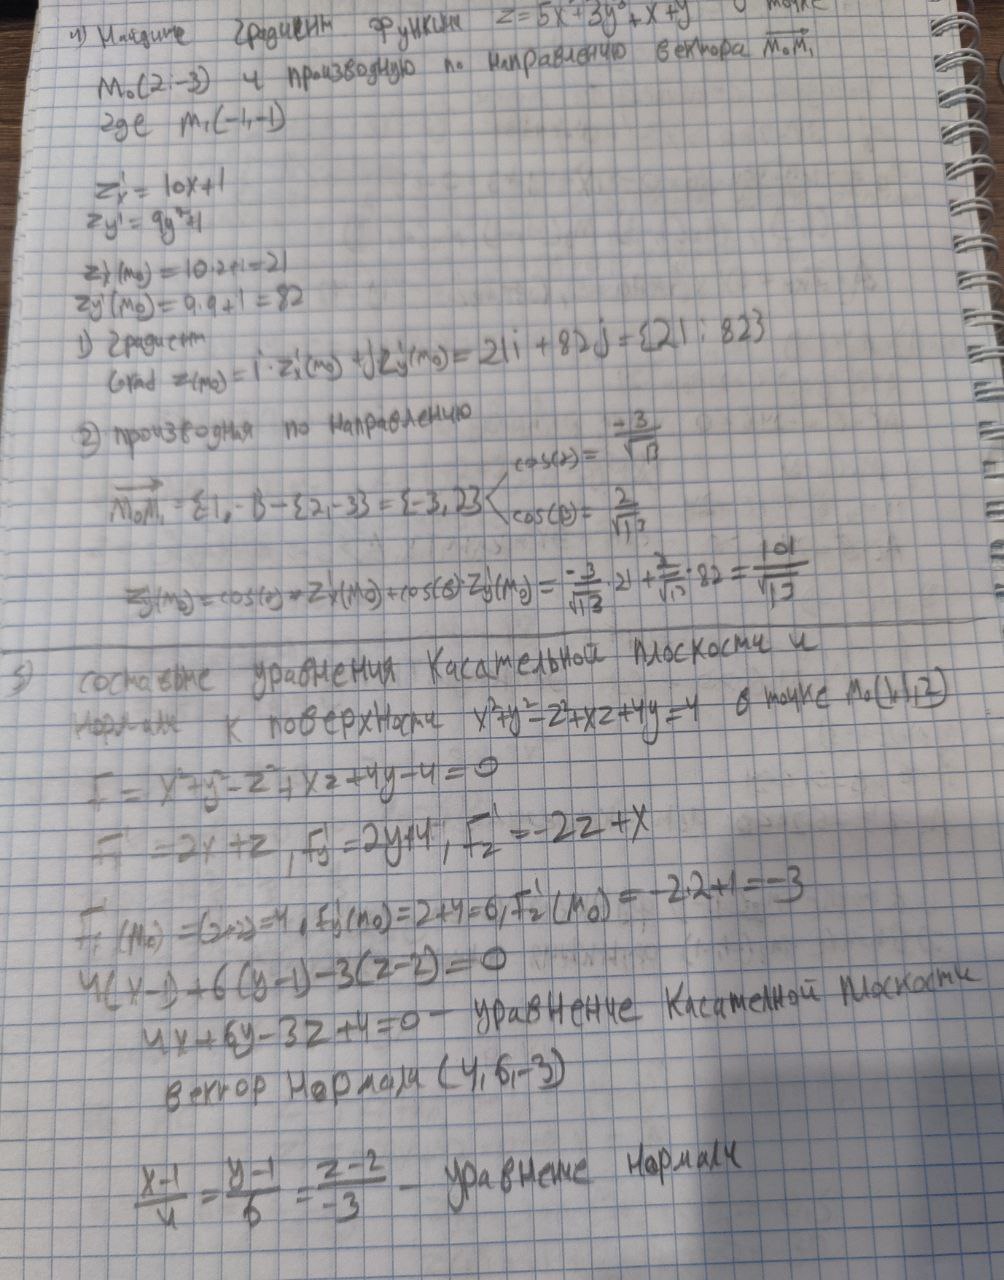 4) Найдите градиент функции z=5x²+3y³+x+y в точке
M₀(2,-3) и производную по направлению вектора M₀M₁
где M₁(-1,-1)
z'x = 10x+1
zy' = 9y²+1
z'x(M₀) = 10·2+1=21
zy'(M₀) = 9·9+1=82
1) градиент
Grad z(M₀) = i·z'x(M₀) + j z'y(M₀) = 21i + 82j = {21; 82}
2) производная по направлению
cos(α) = -3/√13
M₀M₁ = {-1,-1}-{2,-3} = {-3,2}
cos(β) = 2/√13
(M₀) = cos(α) z'x(M₀)+cos(β)·z'y(M₀) = -3/√13·21 + 2/√13·82 = 101/√13
5) составьте уравнения касательной плоскости и
нормали к поверхности x²+y²-z²+xz+4y=4 в точке M₀(1,1,2)
F = x²+y²-z²+xz+4y-4=0
F' = 2x+z, F'y = 2y+4, F'z = -2z+x
F' (M₀) = (2+2)=4, F'y(M₀)=2+4=6, F'z(M₀) = -2·2+1=-3
4(x-1)+6(y-1)-3(z-2)=0
4x+6y-3z+4=0 - уравнение касателной плоскости
вектор нормали (4,6,-3)
x-1/4 = y-1/6 = z-2/-3 - уравнение нормали